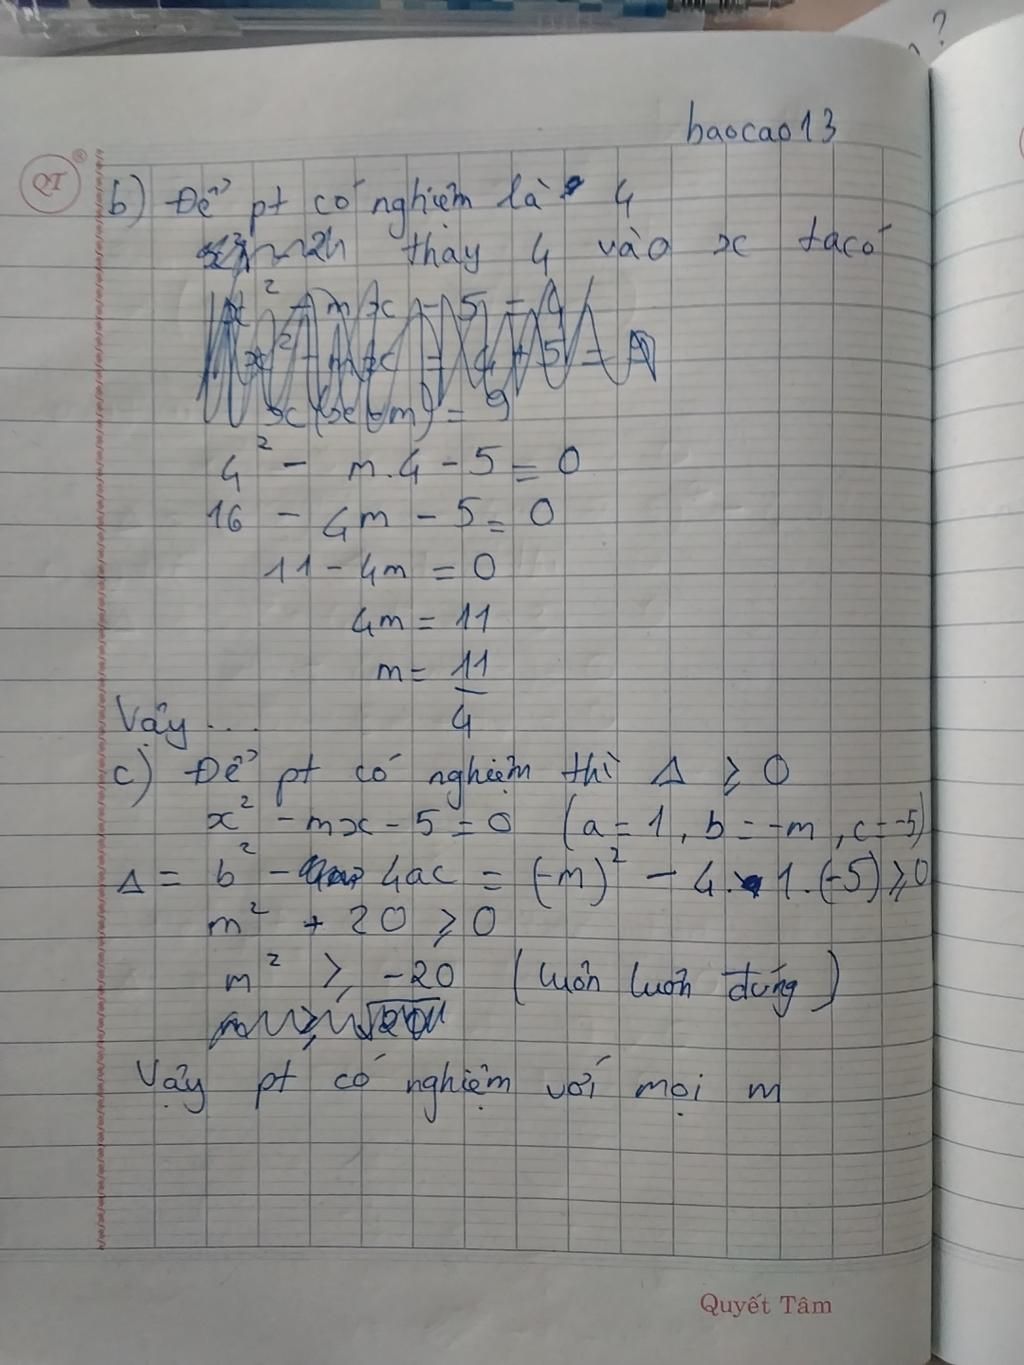 ?
baocao13
QT ®
b) Để pt có nghiệm là 4
thay 4 vào x ta có
x² - mx - 5 = 4
x² - mx - 4 + 5 =
x(x - m) = 9
4² - m.4 - 5 = 0
16 - 4m - 5 = 0
11 - 4m = 0
4m = 11
m = 11/4
Vậy ...
c) Để pt có nghiệm thì Δ ≥ 0
x² - mx - 5 = 0 (a = 1, b = -m, c = -5)
Δ = b² - 4ac = (-m)² - 4.1.(-5) ≥ 0
m² + 20 ≥ 0
m² ≥ -20 (luôn luôn đúng)
Vậy pt có nghiệm với mọi m
Quyết Tâm